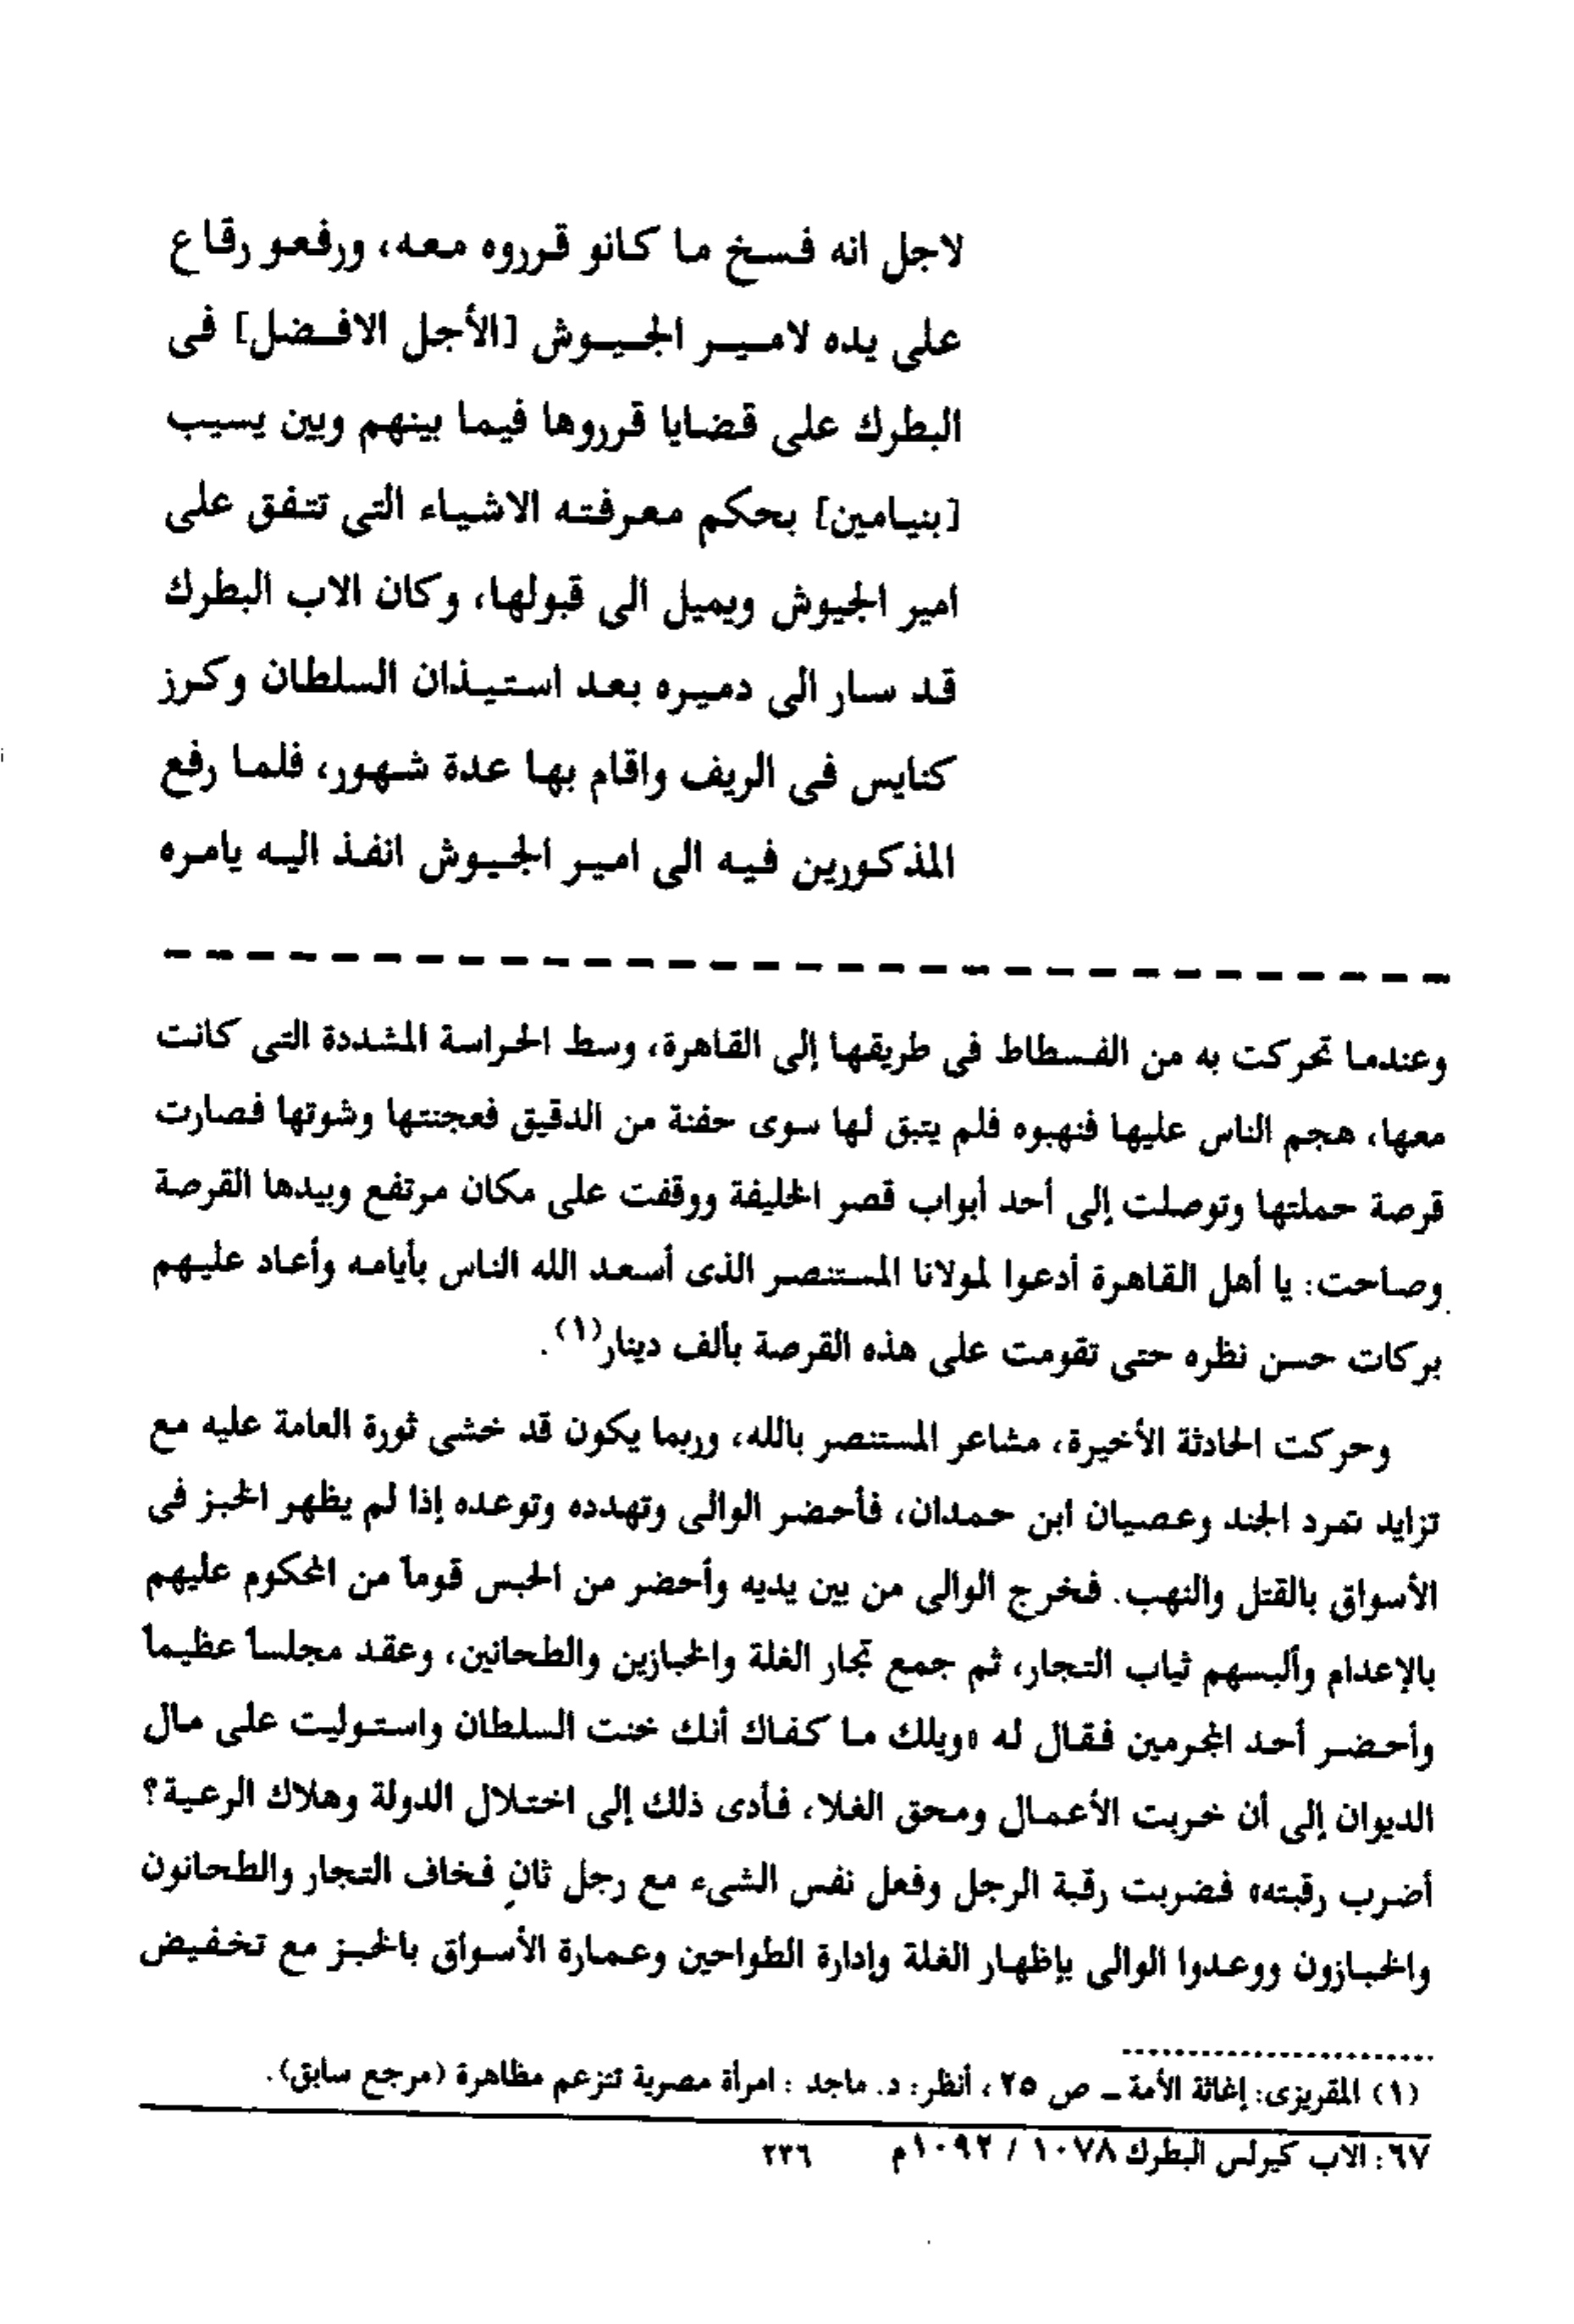 لاجل انه فسخ ما كانو قرروه معه، ورفعو رقاع
على يده لامير الجيوش [الأجل الافضل] فى
البطرك على قضايا قرروها فيما بينهم وبين يسيب
[بنيامين] بحكم معرفته الاشياء التى تتفق على
امير الجيوش ويميل الى قبولها، وكان الاب البطرك
قد سار الى دميره بعد استيذان السلطان وكرز
كنايس فى الريف واقام بها عدة شهور، فلما رفع
المذكورين فيه الى امير الجيوش انفذ اليه يامره
وعندما تحركت به من الفسطاط فى طريقها إلى القاهرة، وسط الحراسة المشددة التى كانت
معها، هجم الناس عليها فنهبوه فلم يتبق لها سوى حفنة من الدقيق فعجنتها وشوتها فصارت
قرصة حملتها وتوصلت إلى أحد أبواب قصر الخليفة ووقفت على مكان مرتفع وبيدها القرصة
وصاحت: يا أهل القاهرة أدعوا لمولانا المستنصر الذى أسعد الله الناس بأيامه وأعاد عليهم
بركات حسن نظره حتى تقومت على هذه القرصة بألف دينار(١).
وحركت الحادثة الأخيرة، مشاعر المستنصر بالله، وربما يكون قد خشى ثورة العامة عليه مع
تزايد تمرد الجند وعصيان ابن حمدان، فأحضر الوالى وتهدده وتوعده إذا لم يظهر الخبز فى
الأسواق بالقتل والنهب. فخرج الوالى من بين يديه وأحضر من الحبس قوماً من المحكوم عليهم
بالإعدام وألبسهم ثياب التجار، ثم جمع تجار الغلة والخبازين والطحانين، وعقد مجلساً عظيماً
وأحضر أحد المجرمين فقال له «ويلك ما كفاك أنك خنت السلطان واستوليت على مال
الديوان إلى أن خربت الأعمال ومحق الغلا، فأدى ذلك إلى اختلال الدولة وهلاك الرعية؟
أضرب رقبته» فضربت رقبة الرجل وفعل نفس الشىء مع رجل ثانٍ فخاف التجار والطحانون
والخبازون ووعدوا الوالى بإظهار الغلة وإدارة الطواحين وعمارة الأسواق بالخبز مع تخفيض
(١) المقريزى: إغاثة الأمة ـ ص ٢٥، أنظر: د. ماجد : امرأة مصرية تتزعم مظاهرة (مرجع سابق).
٦٧: الاب كيرلس البطرك ١٠٧٨ / ١٠٩٢م ٢٣٦